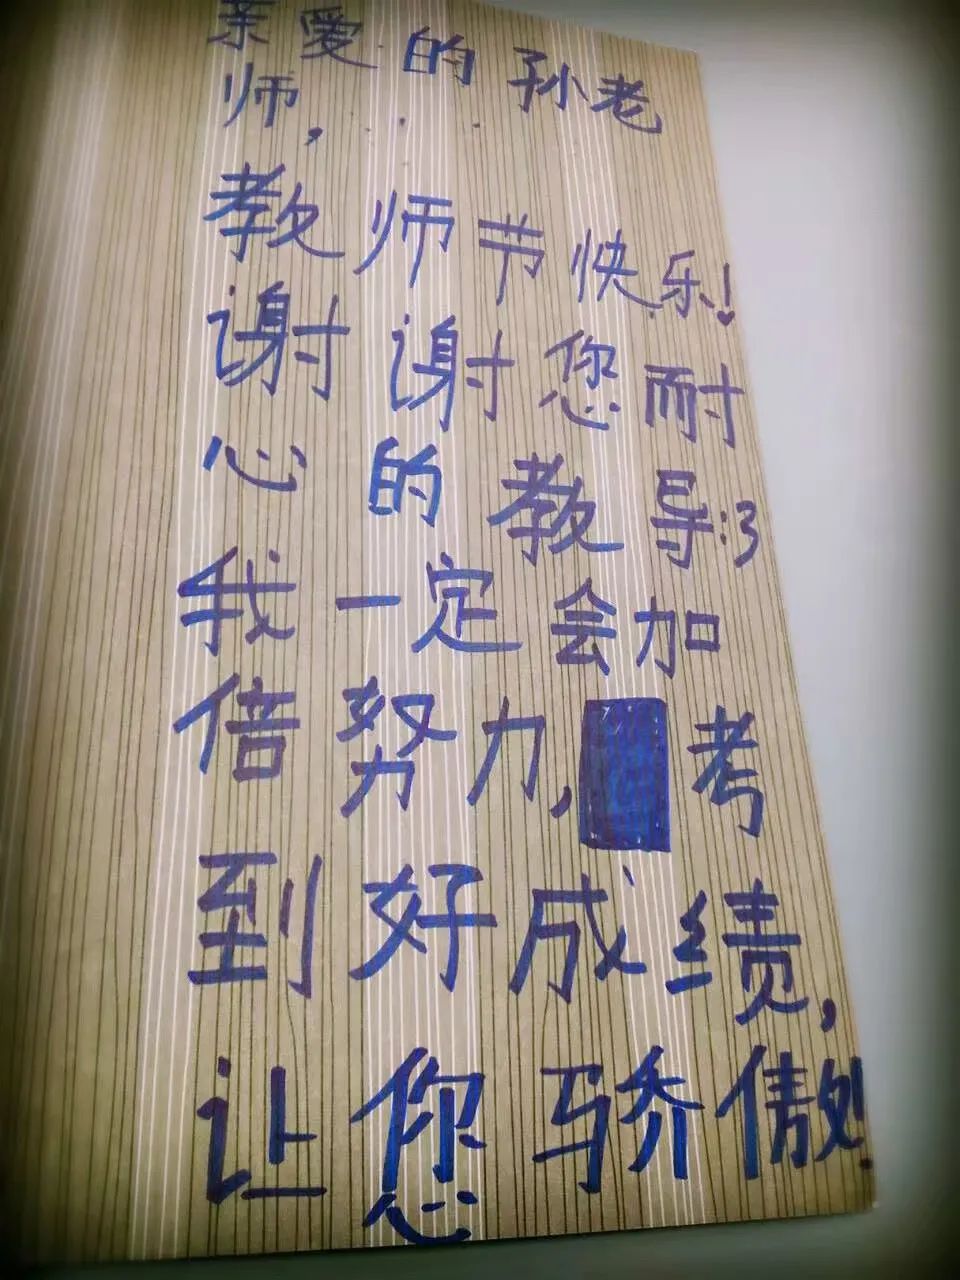 亲爱的孙老
师,
教师节快乐!
谢谢您耐
心的教导:3
我一定会加
倍努力,考
到好成绩,
让您骄傲!